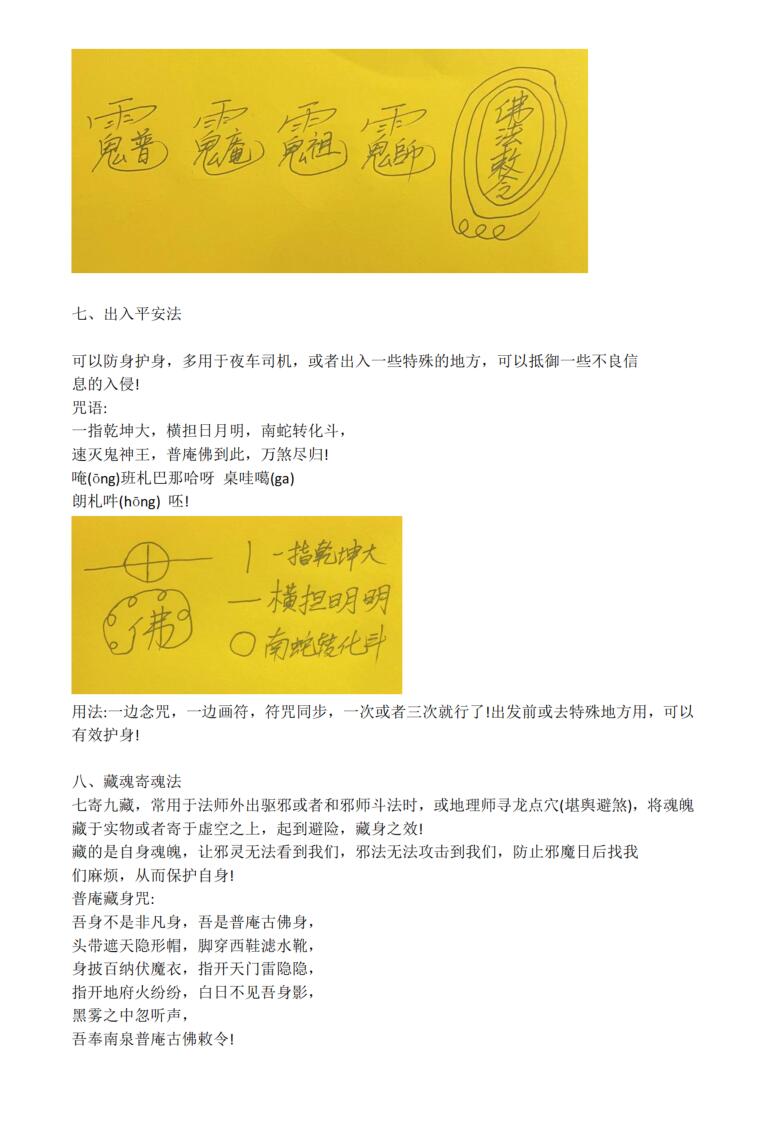 普 庵 祖 師
佛法敕令
七、出入平安法
可以防身护身，多用于夜车司机，或者出入一些特殊的地方，可以抵御一些不良信
息的入侵!
咒语:
一指乾坤大，横担日月明，南蛇转化斗，
速灭鬼神王，普庵佛到此，万煞尽归!
唵(ōng)班札巴那哈呀 桌哇噶(ga)
朗札吽(hōng) 呸!
佛
一指乾坤大
横担明明
南蛇转化斗
用法:一边念咒，一边画符，符咒同步，一次或者三次就行了!出发前或去特殊地方用，可以
有效护身!
八、藏魂寄魂法
七寄九藏，常用于法师外出驱邪或者和邪师斗法时，或地理师寻龙点穴(堪舆避煞)，将魂魄
藏于实物或者寄于虚空之上，起到避险，藏身之效!
藏的是自身魂魄，让邪灵无法看到我们，邪法无法攻击到我们，防止邪魔日后找我
们麻烦，从而保护自身!
普庵藏身咒:
吾身不是非凡身，吾是普庵古佛身，
头带遮天隐形帽，脚穿西鞋滤水靴，
身披百纳伏魔衣，指开天门雷隐隐，
指开地府火纷纷，白日不见吾身影，
黑雾之中忽听声，
吾奉南泉普庵古佛敕令!